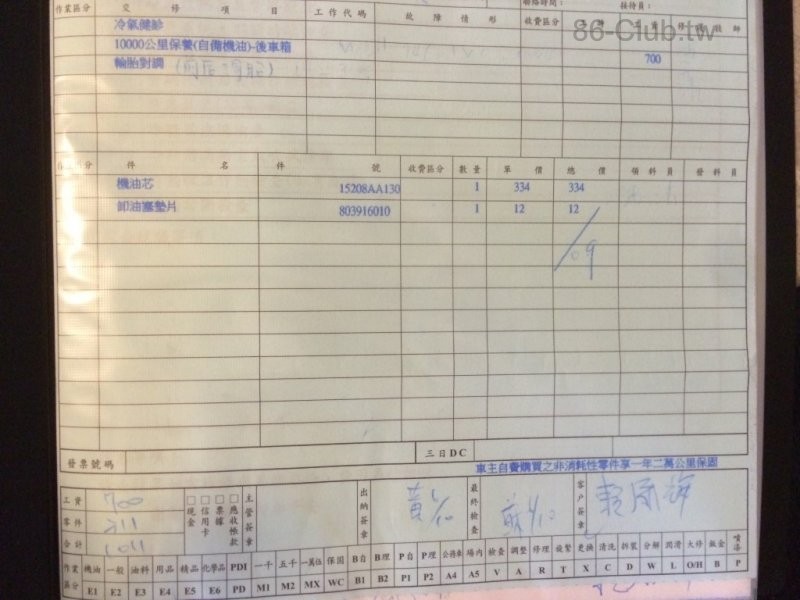 聯絡時間： 接待員：
作業區分 交修項目 工作代碼 故障情形 收費區分
86-Club.tw
冷氣健診
10000公里保養(自備機油)-後車箱
輪胎對調 700
件名 件號 收費區分 數量 單價 總價 領料員 發料員
機油芯 15208AA130 1 334 334
卸油塞墊片 803916010 1 12 12
發票號碼 三日DC
車主自費購買之非消耗性零件享一年二萬公里保固
工資 700
零件 311
合計 1011
□現金 □信用卡 □票據 □應收帳款
主管簽章
出納簽章
最終檢查
客戶簽章
作業區分 機油 一般 油料 用品 精品 化學品 PDI 一千 五千 一萬伍 保固 B自 B理 P自 P理 公務車 場內 檢查 調整 修理 旋緊 更換 清洗 拆裝 分解 潤滑 大修 鈑金 噴漆
E1 E2 E3 E4 E5 E6 PD M1 M2 MX WC B1 B2 P1 P2 A4 A5 V A R T X C D W L O/H B P